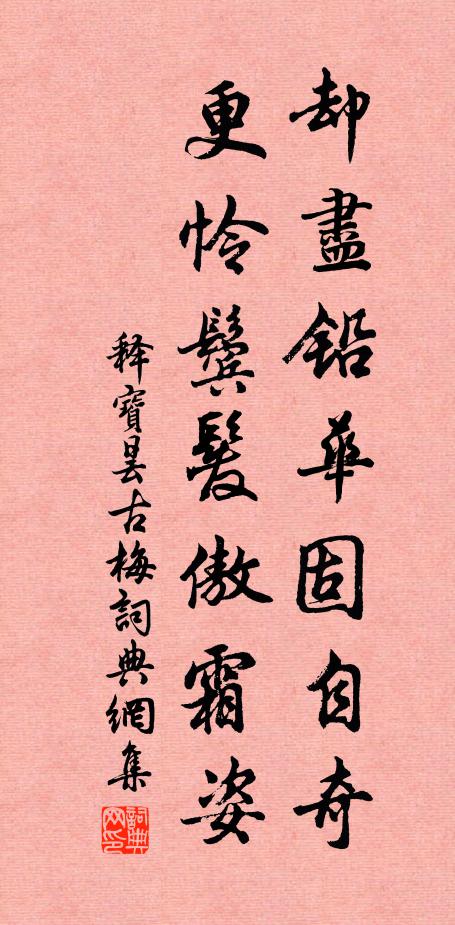 却盡鉛華固自奇
更怜鬓髮傲霜姿
释寶曇古梅詞典網集
詞典网印